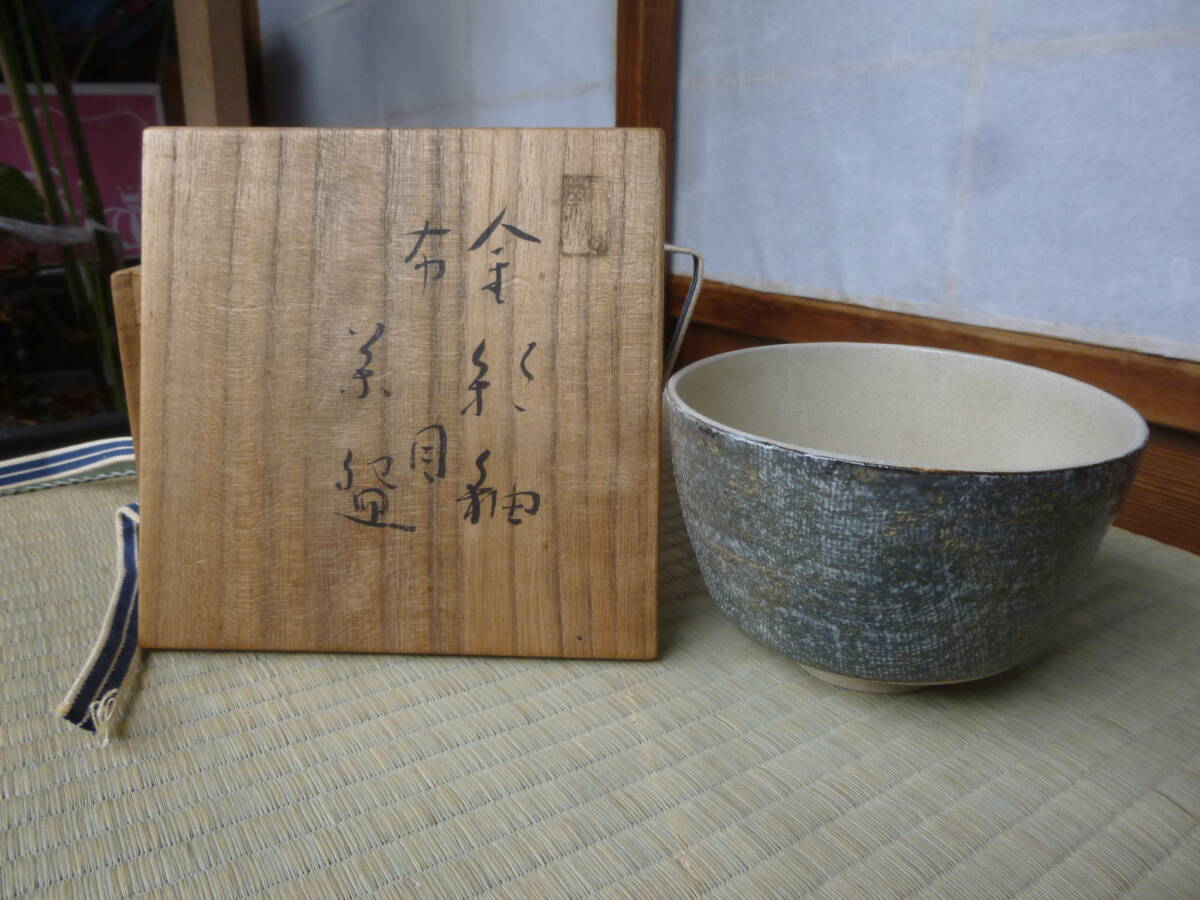 金彩釉
布目
茶盌